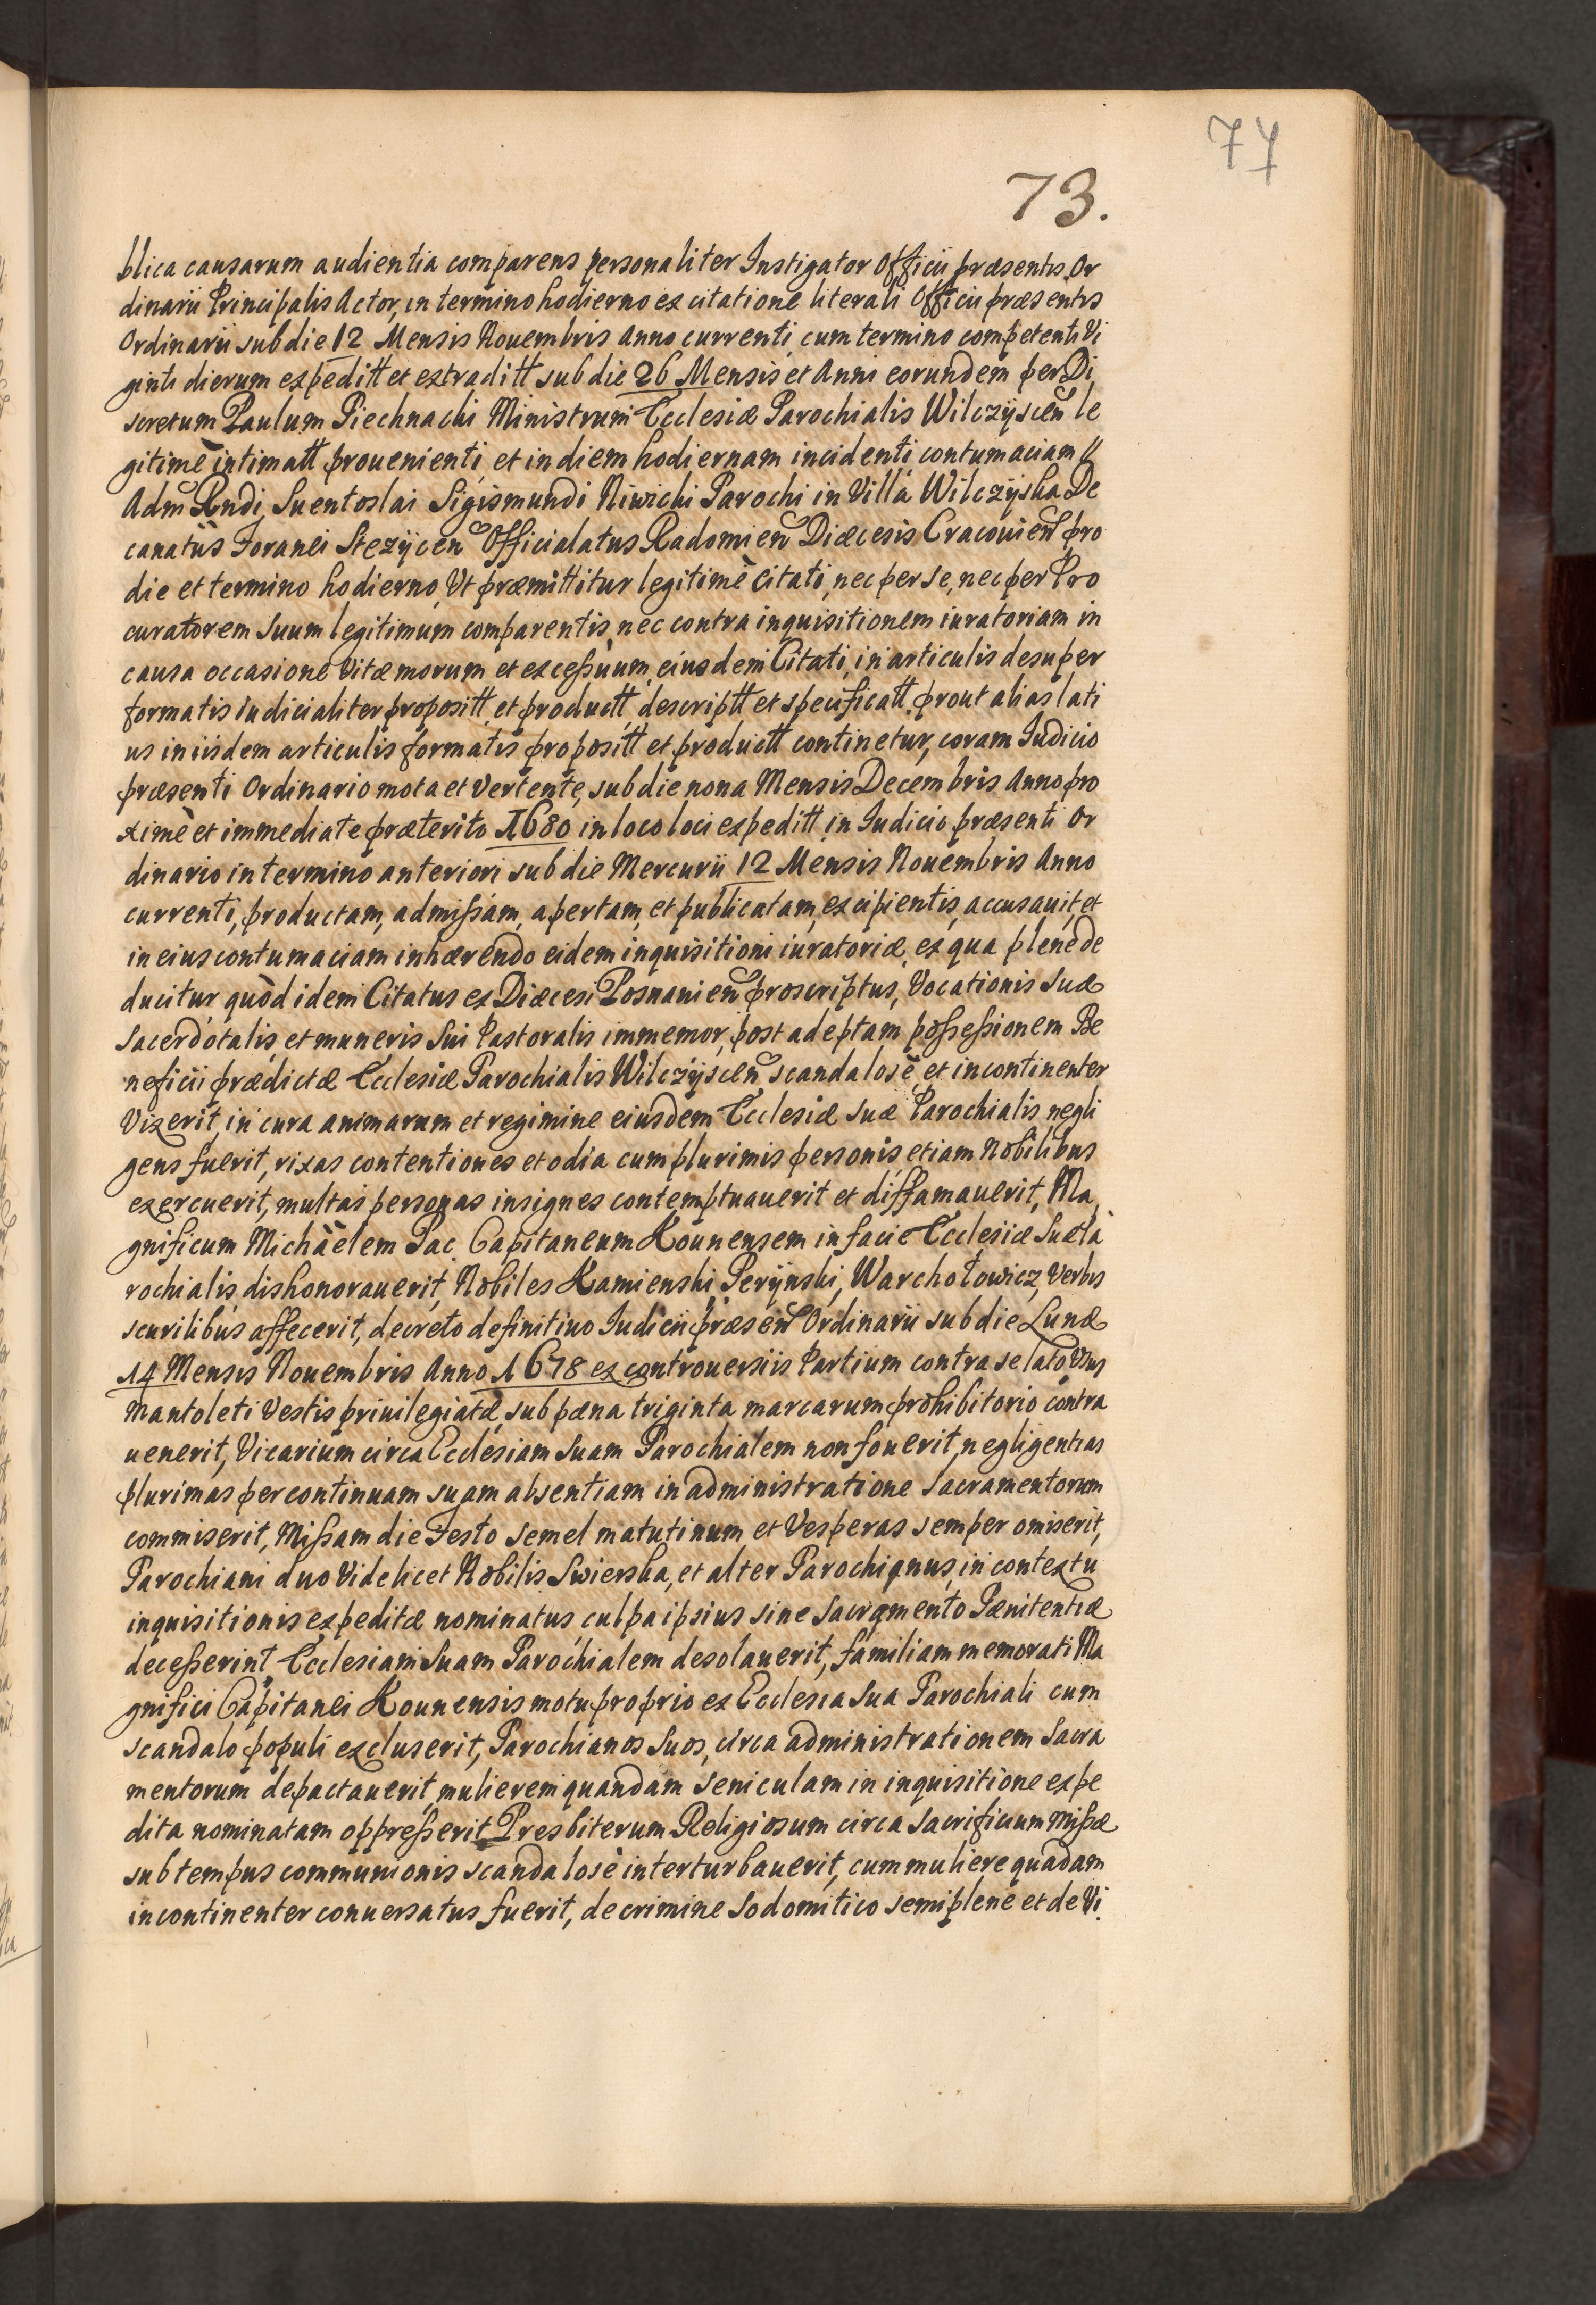 77
73.
blica causarum audientia comparens personaliter Instigator Officii præsentis Or
dinarii Principalis Actor, in termino hodierno ex citatione literali Officii præsentis
Ordinarii sub die 12 Mensis Nouembris Anno currenti, cum termino competenti Vi
ginti dierum expeditt et extraditt sub die 26 Mensis et Anni eorundem per Di
scretum Paulum Piechnachi Ministrum Ecclesiæ Parochialis Wilczÿscen le
gitimè intimatt prouenienti, et in diem hodiernam incidenti contumaciam //
Adm Rndi Suentoslai Sigismundi Niwicki Parochi in Villa Wilczÿska De
canatus Foranei Stezÿcen Officialatus Radomien Diæcesis Cracouien pro
die et termino hodierno, Vt præmittitur legitimè Citati, nec per se, nec per Pro
curatorem Suum legitimum comparentis, nec contra inquisitionem iuratoriam in
causa occasione Vitæ morum et excessuum, eiusdem Citati, in articulis desuper
formatis iudicialiter propositt, et productt, descriptt et specificatt, prout alias lati
us in iisdem articulis formatis propositt et productt continetur, coram Iudicio
præsenti Ordinario mota et vertente, sub die nona Mensis Decembris Anno pro
ximè et immediate præterito 1680 in loco loci expeditt, in Iudicio præsenti Or
dinario in termino anteriori sub die Mercurii 12 Mensis Nouembris Anno
currenti, productam, admissam, apertam, et publicatam, excipientis, accusauit, et
in eius contumaciam inhærendo eidem inquisitioni iuratoriæ, ex qua plenè de
ducitur, quòd idem Citatus ex Diæcesi Posnanien proscriptus, Vocationis Suæ
Sacerdotalis, et muneris Sui Pastoralis immemor, post adeptam possessionem Be
neficii prædictæ Ecclesiæ Parochialis Wilczÿscen scandalosè, et incontinenter
Vixerit, in cura animarum et regimine eiusdem Ecclesiæ suæ Parochialis, negli
gens fuerit, rixas contentiones et odia cum plurimis personis, etiam Nobilibus
exercuerit, multas personas insignes contemptuauerit et diffamauerit, Ma
gnificum Michäelem Pac Capitaneum Kounensem in facie Ecclesiæ Suæ Pa
rochialis dishonorauerit, Nobiles Kamienski, Perÿnski, Warchołowicz, Verbis
scurilibus affecerit, decreto definitiuo Iudicii præsen Ordinarii sub die Lunæ
14 Mensis Nouembris Anno 1678 ex controuersiis Partium contra se lato Vsus
Mantoleti Vestis priuilegiatæ, sub pæna triginta marcarum prohibitorio contra
uenerit, Vicarium circa Ecclesiam Suam Parochialem non fouerit, negligentias
plurimas per continuam suam absentiam in administratione Sacramentorum
commiserit, Missam die Festo semel matutinum et Vesperas semper omiserit,
Parochiani duo Videlicet Nobilis Swierska, et alter Parochianus, in contextu
inquisitionis expeditæ nominatus, culpa ipsius sine Sacramento Pænitentiæ
decesserint, Ecclesiam Suam Parochialem desolauerit, familiam memorati Ma
gnifici Capitanei Kounensis motu proprio ex Ecclesia Sua Parochiali cum
scandalo populi excluserit, Parochianos Suos, circa administrationem Sacra
mentorum depactauerit, mulierem quandam seniculam in inquisitione expe
dita nominatam oppresserit, Presbiterum Religiosum circa Sacrificium Missæ
sub tempus communionis scandalosè interturbauerit, cum muliere quadam
incontinenter conuersatus fuerit, de crimine Sodomitico semiplenè et de Vi